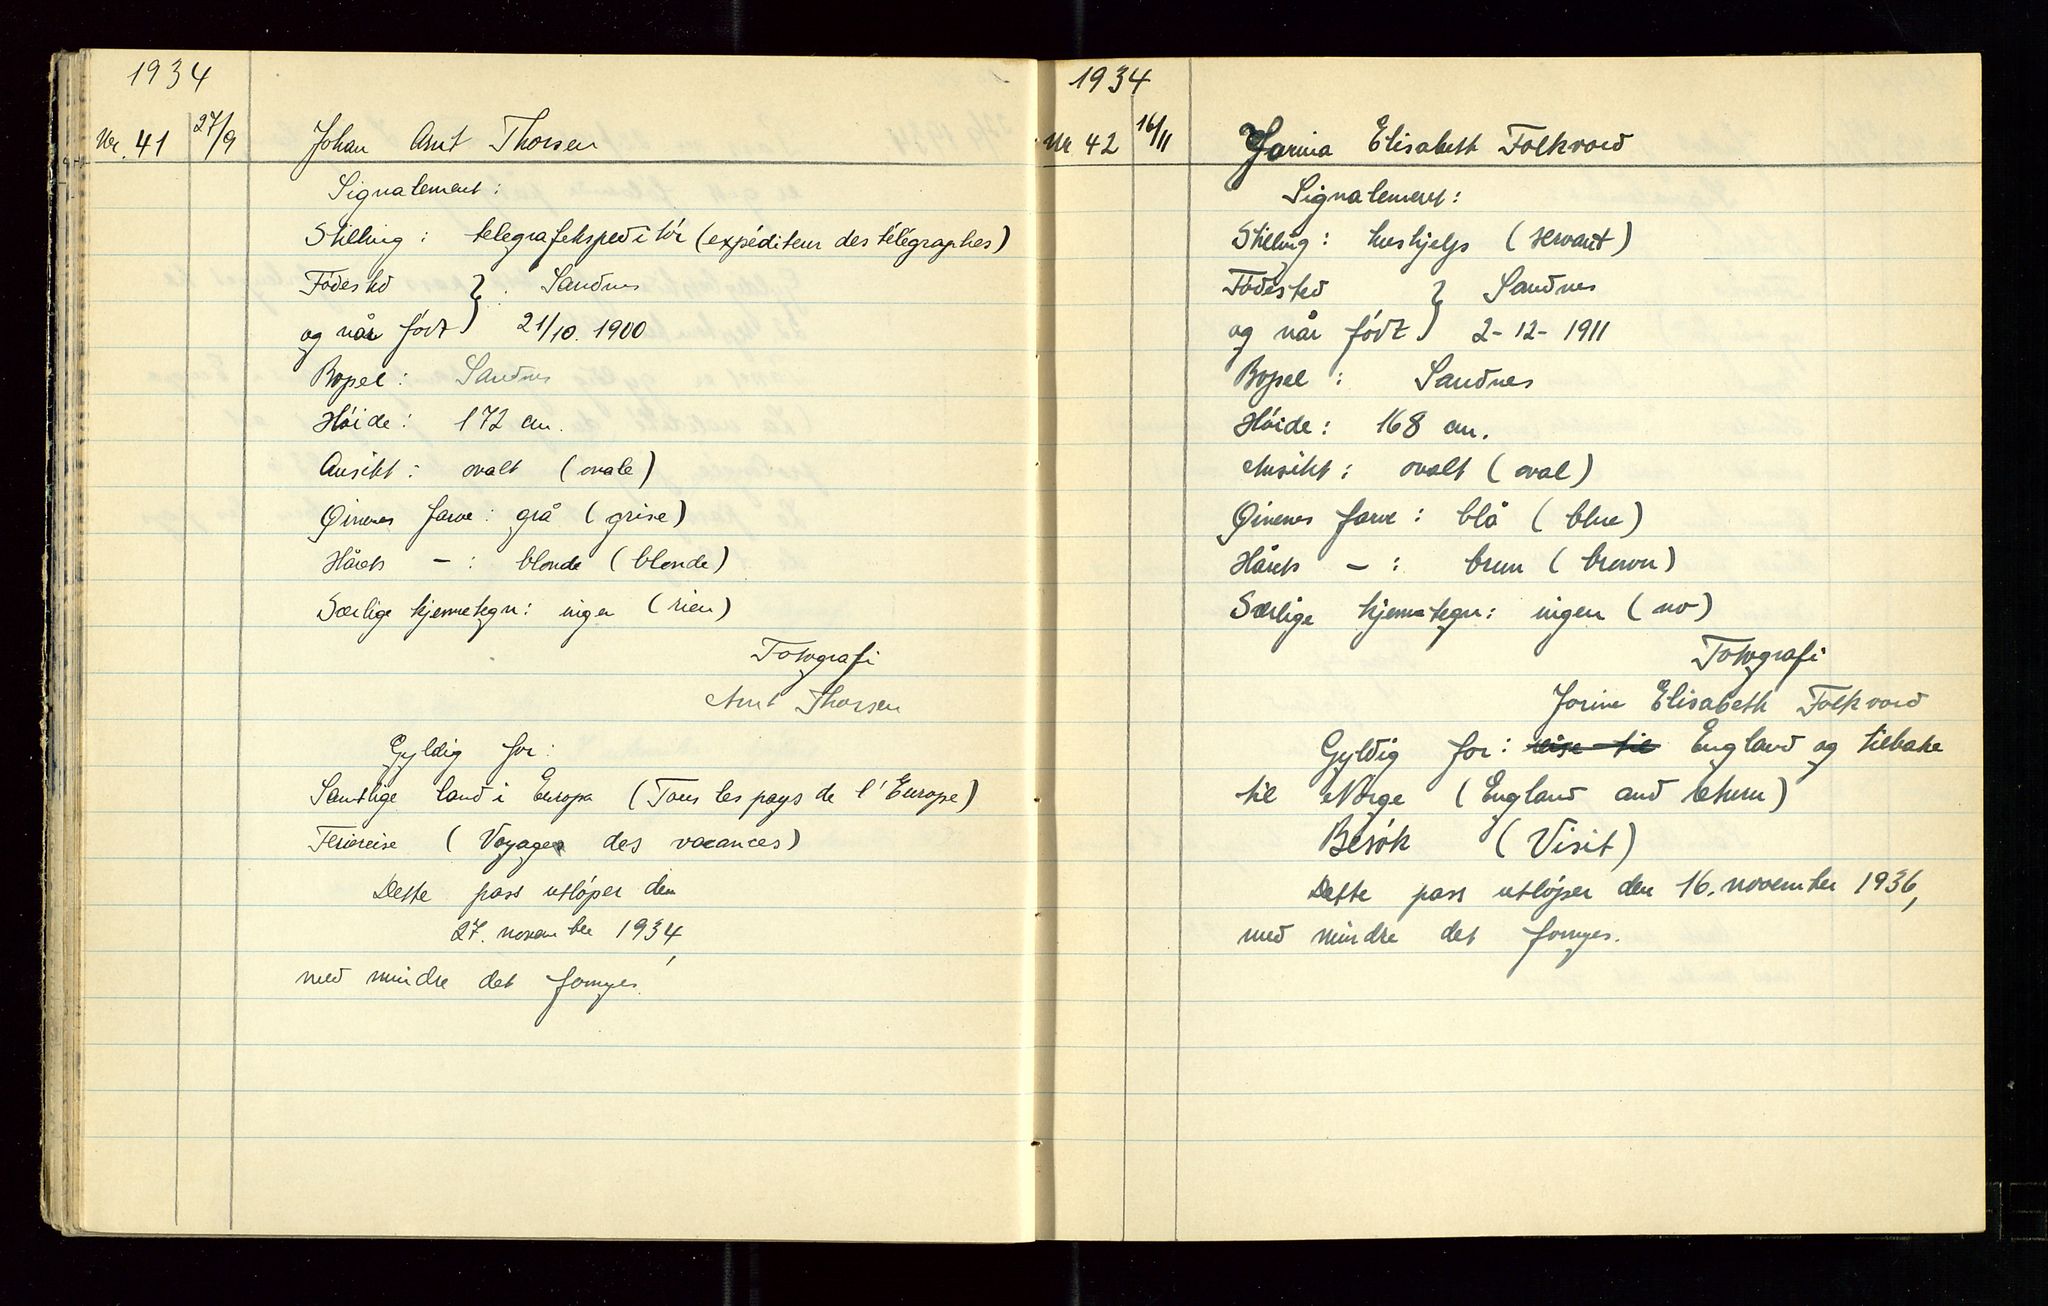 1934
Nr. 41 27/9 Johan Arnt Thorsen
Signalement:
Stilling: telegrafekspeditör (expéditeur des télégraphes)
Födested } Sandnes
og når födt } 21/10. 1900
Bopel: Sandnes
Höide: 172 cm.
Ansikt: ovalt (ovale)
Öinenes farve: grå (grise)
Hårets - : blonde (blonde)
Særlige kjennetegn: ingen (rien)
Fotografi
Arnt Thorsen
Gyldig for:
Samtlige land i Europa (Tous les pays de l'Europe)
Feriereise (Voyages des vacances)
Dette pass utlöper den
27. november 1934,
med mindre det fornyes.
1934
Nr 42 16/11 Jorina Elisabeth Folkvord
Signalement:
Stilling: hushjelp (servant)
Födested } Sandnes
og når födt } 2-12-1911
Bopel: Sandnes
Höide: 168 cm.
Ansikt: ovalt (oval)
Öinenes farve: blå (blue)
Hårets - : brun (brown)
Særlige kjennetegn: ingen (no)
Fotografi
Jorine Elisabeth Folkvord
Gyldig for: reise til England og tilbake
til Norge (England and return)
Besök (Visit)
Dette pass utlöper den 16. november 1936,
med mindre det fornyes.